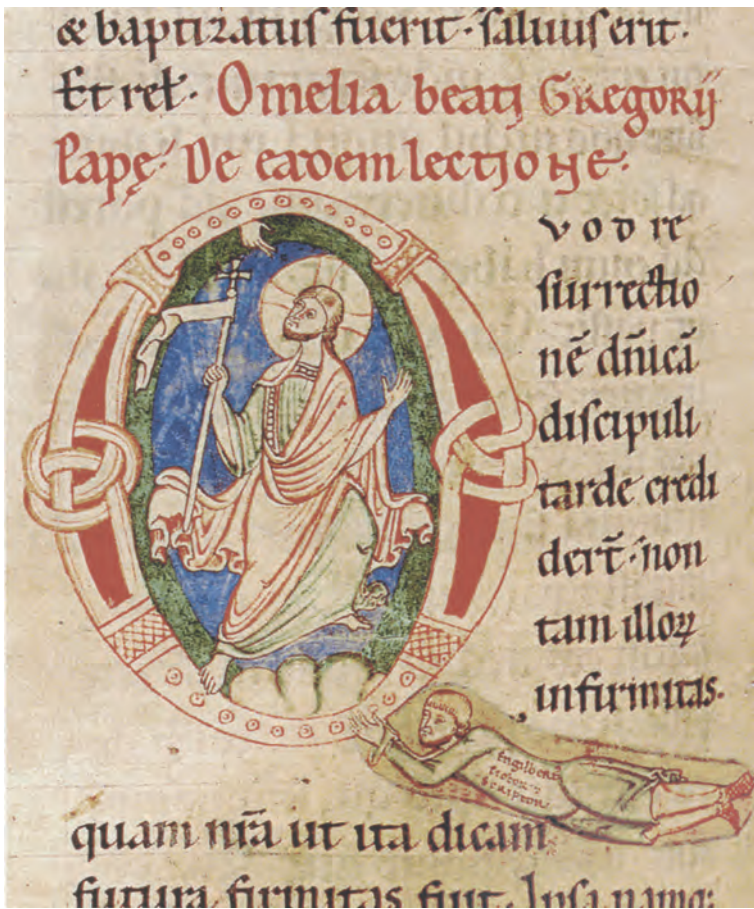 & baptizatus fuerit· saluus erit·
Et rel̃· Omelia beati Gregorij
Papę· De eadem lectione·
vod re
surrectio
nē dn̄icā
discipuli
tarde credi
dert̄· non
tam illoꝝ
infirmitas·
Engilbert
scriptor
quam nr̄a ut ita dicam
futura firmitas fuit· Ipsa namq;